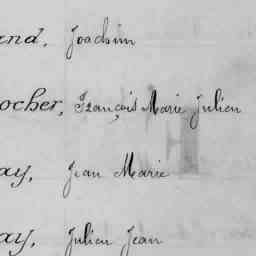 end, Joachim
ocher, François Marie Julien
ay, Jean Marie
ay, Julien Jean